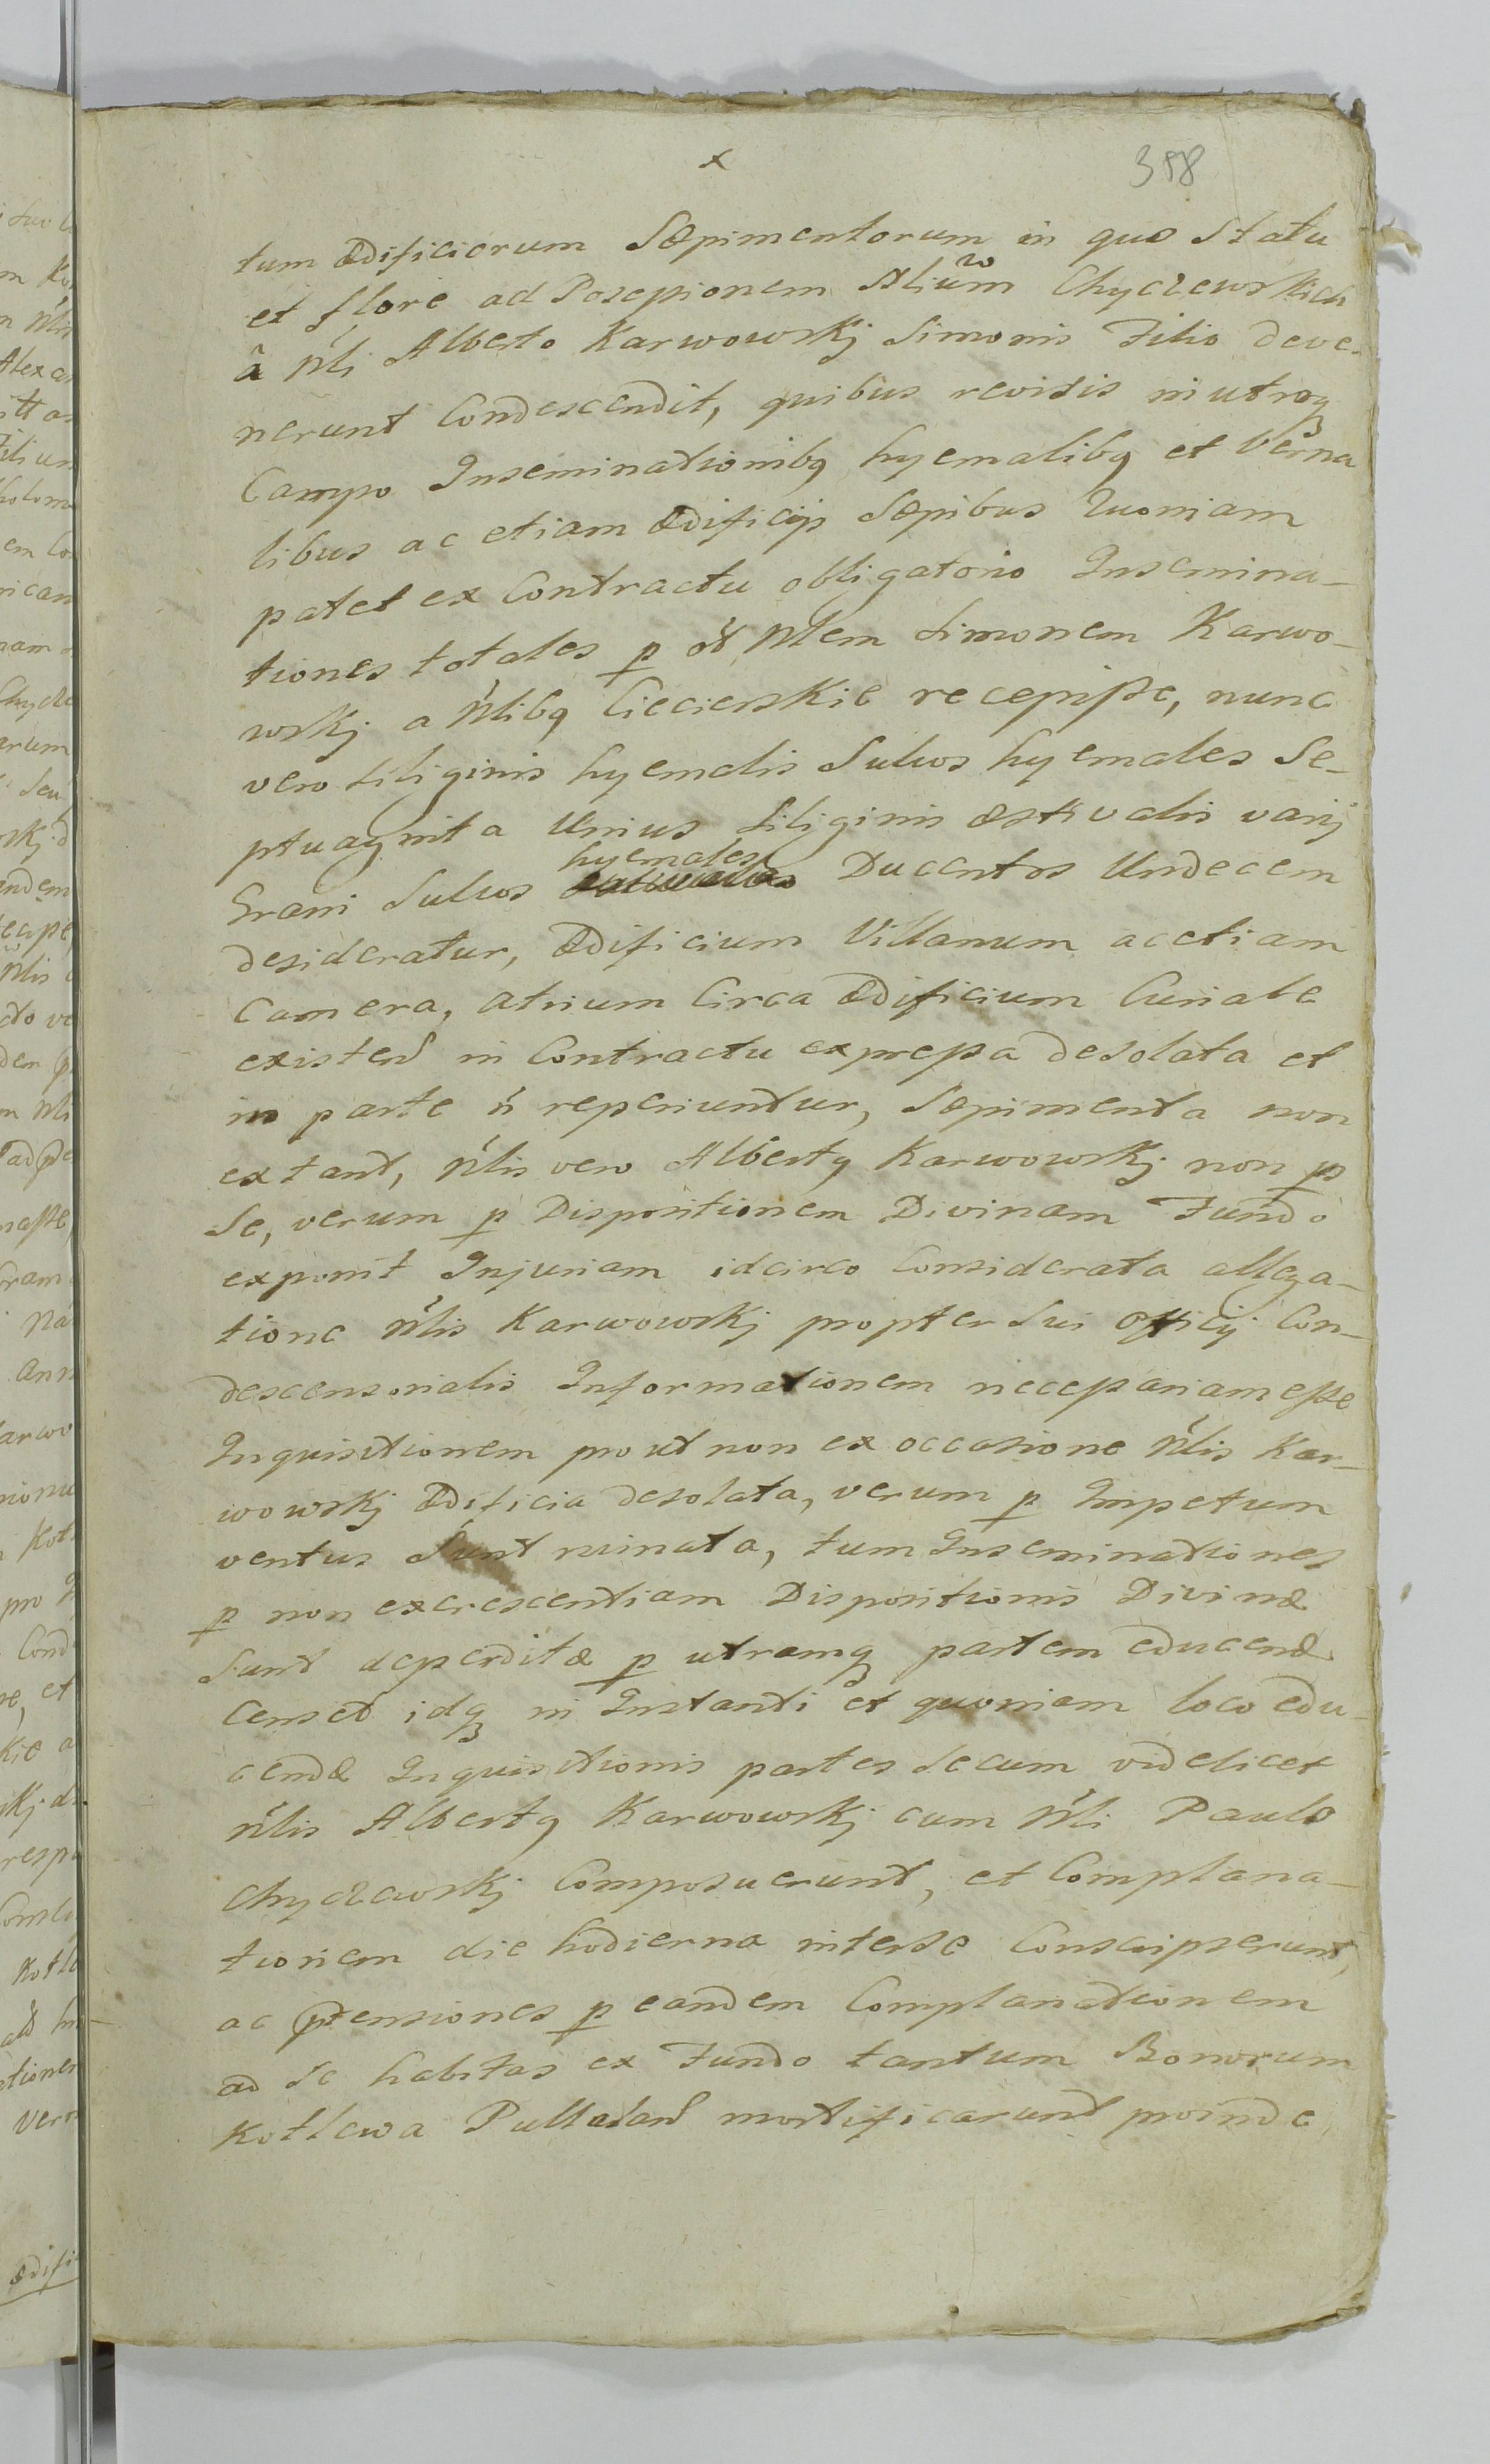 x
358
tum ædificiorum Sæpimentorum in quo Statu
et flore ad Possessionem Nlium Chyczewskich
â Nli Alberto Karwowskj Simonis Filio deve-
nerunt Condescendit, quibus revisis in utroq
Campo Inseminationibq hyemalibq et Verna
libus ac etiam ædificijs Sæpibus Quoniam
patet ex Contractu obligatorio Insemina-
tiones totales p Nlem Simonem Karwo-
wskj a Nlibq Ciecierskie recepisse, nunc
vero Siliginis hyemalis Sulcos hyemales Se-
ptuaginta Unius Siliginis æstivalis varij
Grani Sulcos hyemales Ducentos Undecem
desideratur, ædificium Villanum ac etiam
Camera, atrium Circa ædificium Curiale
existen in Contractu expressa desolata et
in parte ñ reperiuntur, Sæpimenta non
extant, Nlis vero Albertq Karwowskj non p
Se, verum p Dispositionem Divinam Fundo
exponit Injuriam idcirco Considerata allega-
tione Nlis Karwowskj propter Sui officij Con-
descensorialis Informationem necessariam esse
Inquisitionem prout non ex occasione Nlis Kar-
wowskj ædificia desolata, verum p Impetum
ventus Sunt ruinata, tum Inseminationes
p non excrescentiam Dispositionis Divinæ
Sunt deperditæ p utramq partem educenæ
Censet idq in Instanti et quoniam loco edu-
cendæ Inquisitionis partes Secum videlicet
Nlis Albertq Karwowskj cum Nli Paulo
Chyczewskj Composuerunt, et Complana-
tionem die hodierna interse Conscripserunt,
ac ptensiones p eandem Complanationem
ad Se habitas ex Fundo tantum Bonorum
Kotlewa mortificarunt proinde